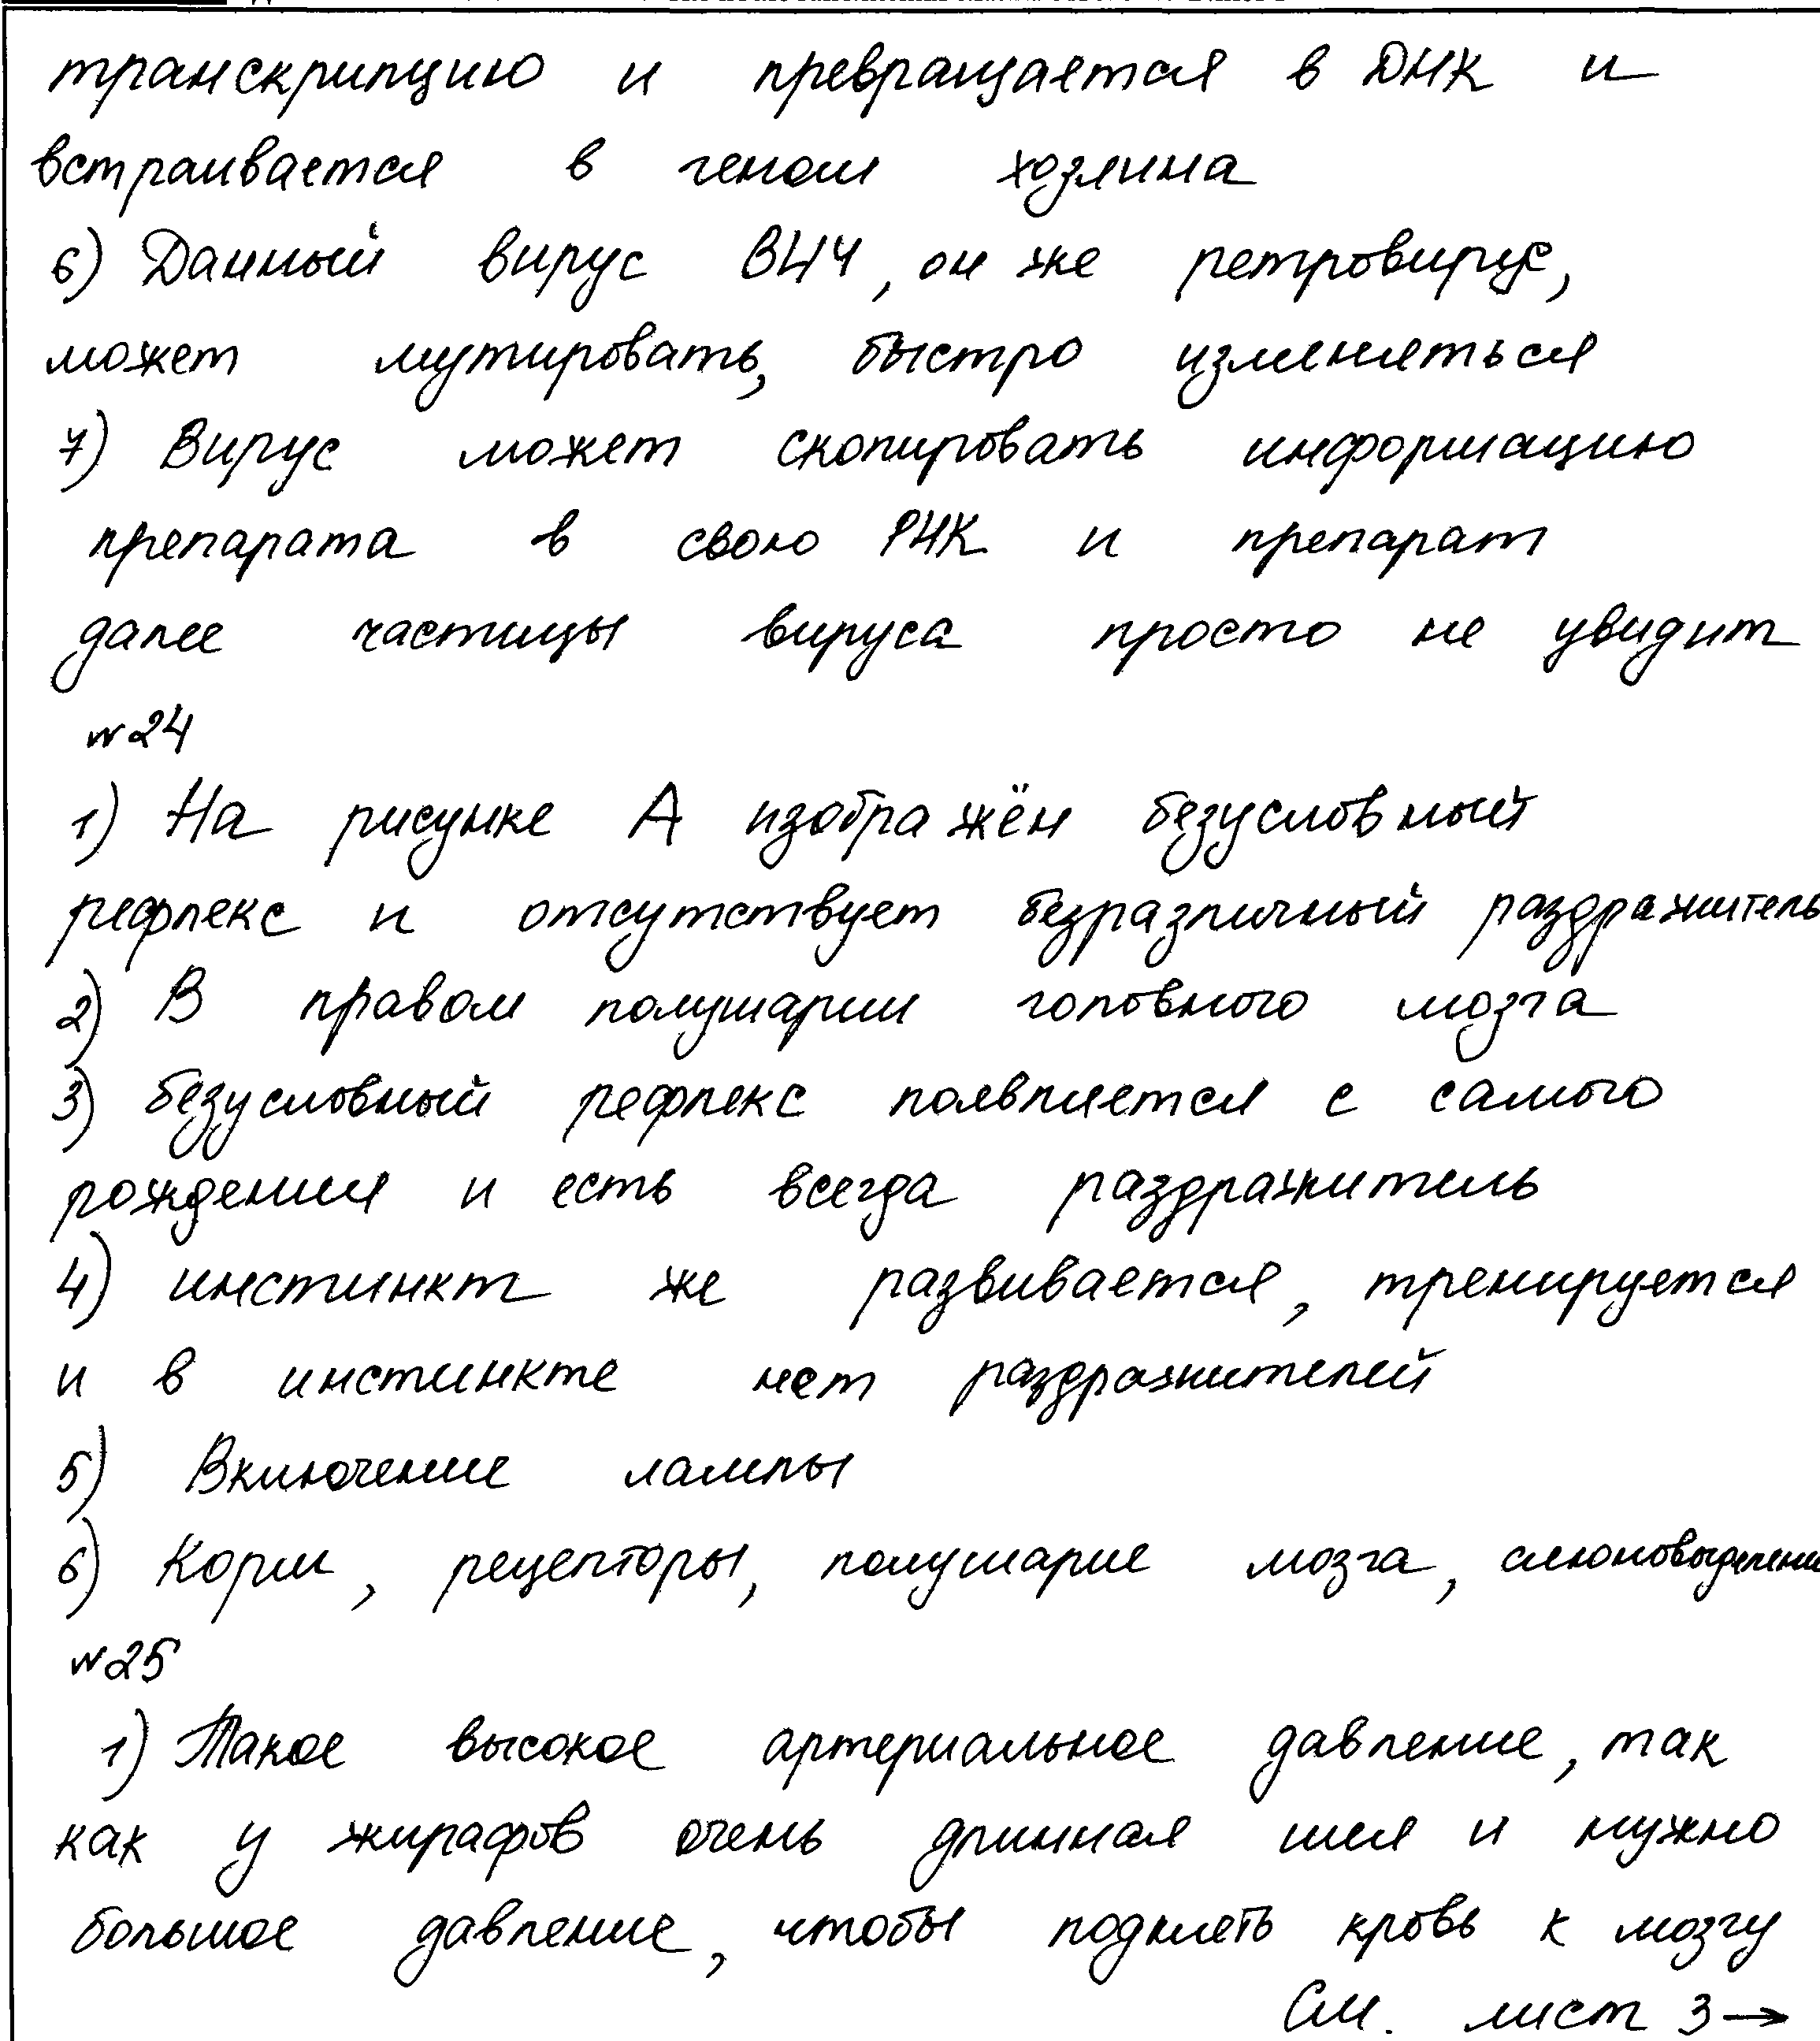 транскрипцию и превращается в ДНК и
встраивается в геном хозяина
6) Данный вирус ВИЧ, он же ретровирус,
может мутировать, быстро изменяться
7) Вирус может скопировать информацию
препарата в свою РНК и препарат
далее частицы вируса просто не увидит
№24
1) На рисунке А изображён безусловный
рефлекс и отсутствует безразличный раздражитель
2) В правом полушарии головного мозга
3) безусловный рефлекс появляется с самого
рождения и есть всегда раздражитель
4) инстинкт же развивается, тренируется
и в инстинкте нет раздражителей
5) Включение лампы
6) Корм, рецепторы, полушарие мозга, слюновыделение
№25
1) Такое высокое артериальное давление, так
как у жирафов очень длинная шея и нужно
большое давление, чтобы поднять кровь к мозгу
См. лист 3→